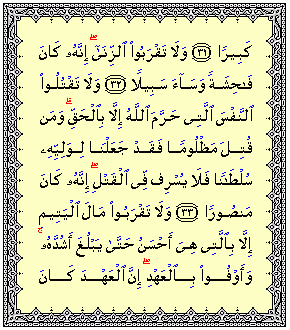 كَبِيرًا ٣١ وَلَا تَقْرَبُوا۟ ٱلزِّنَىٰٓ ۖ إِنَّهُۥ كَانَ
فَـٰحِشَةً وَسَآءَ سَبِيلًا ٣٢ وَلَا تَقْتُلُوا۟
ٱلنَّفْسَ ٱلَّتِى حَرَّمَ ٱللَّهُ إِلَّا بِٱلْحَقِّ ۗ وَمَن
قُتِلَ مَظْلُومًا فَقَدْ جَعَلْنَا لِوَلِيِّهِۦ
سُلْطَـٰنًا فَلَا يُسْرِف فِّى ٱلْقَتْلِ ۖ إِنَّهُۥ كَانَ
مَنصُورًا ٣٣ وَلَا تَقْرَبُوا۟ مَالَ ٱلْيَتِيمِ
إِلَّا بِٱلَّتِى هِىَ أَحْسَنُ حَتَّىٰ يَبْلُغَ أَشُدَّهُۥ ۚ
وَأَوْفُوا۟ بِٱلْعَهْدِ ۖ إِنَّ ٱلْعَهْدَ كَانَ